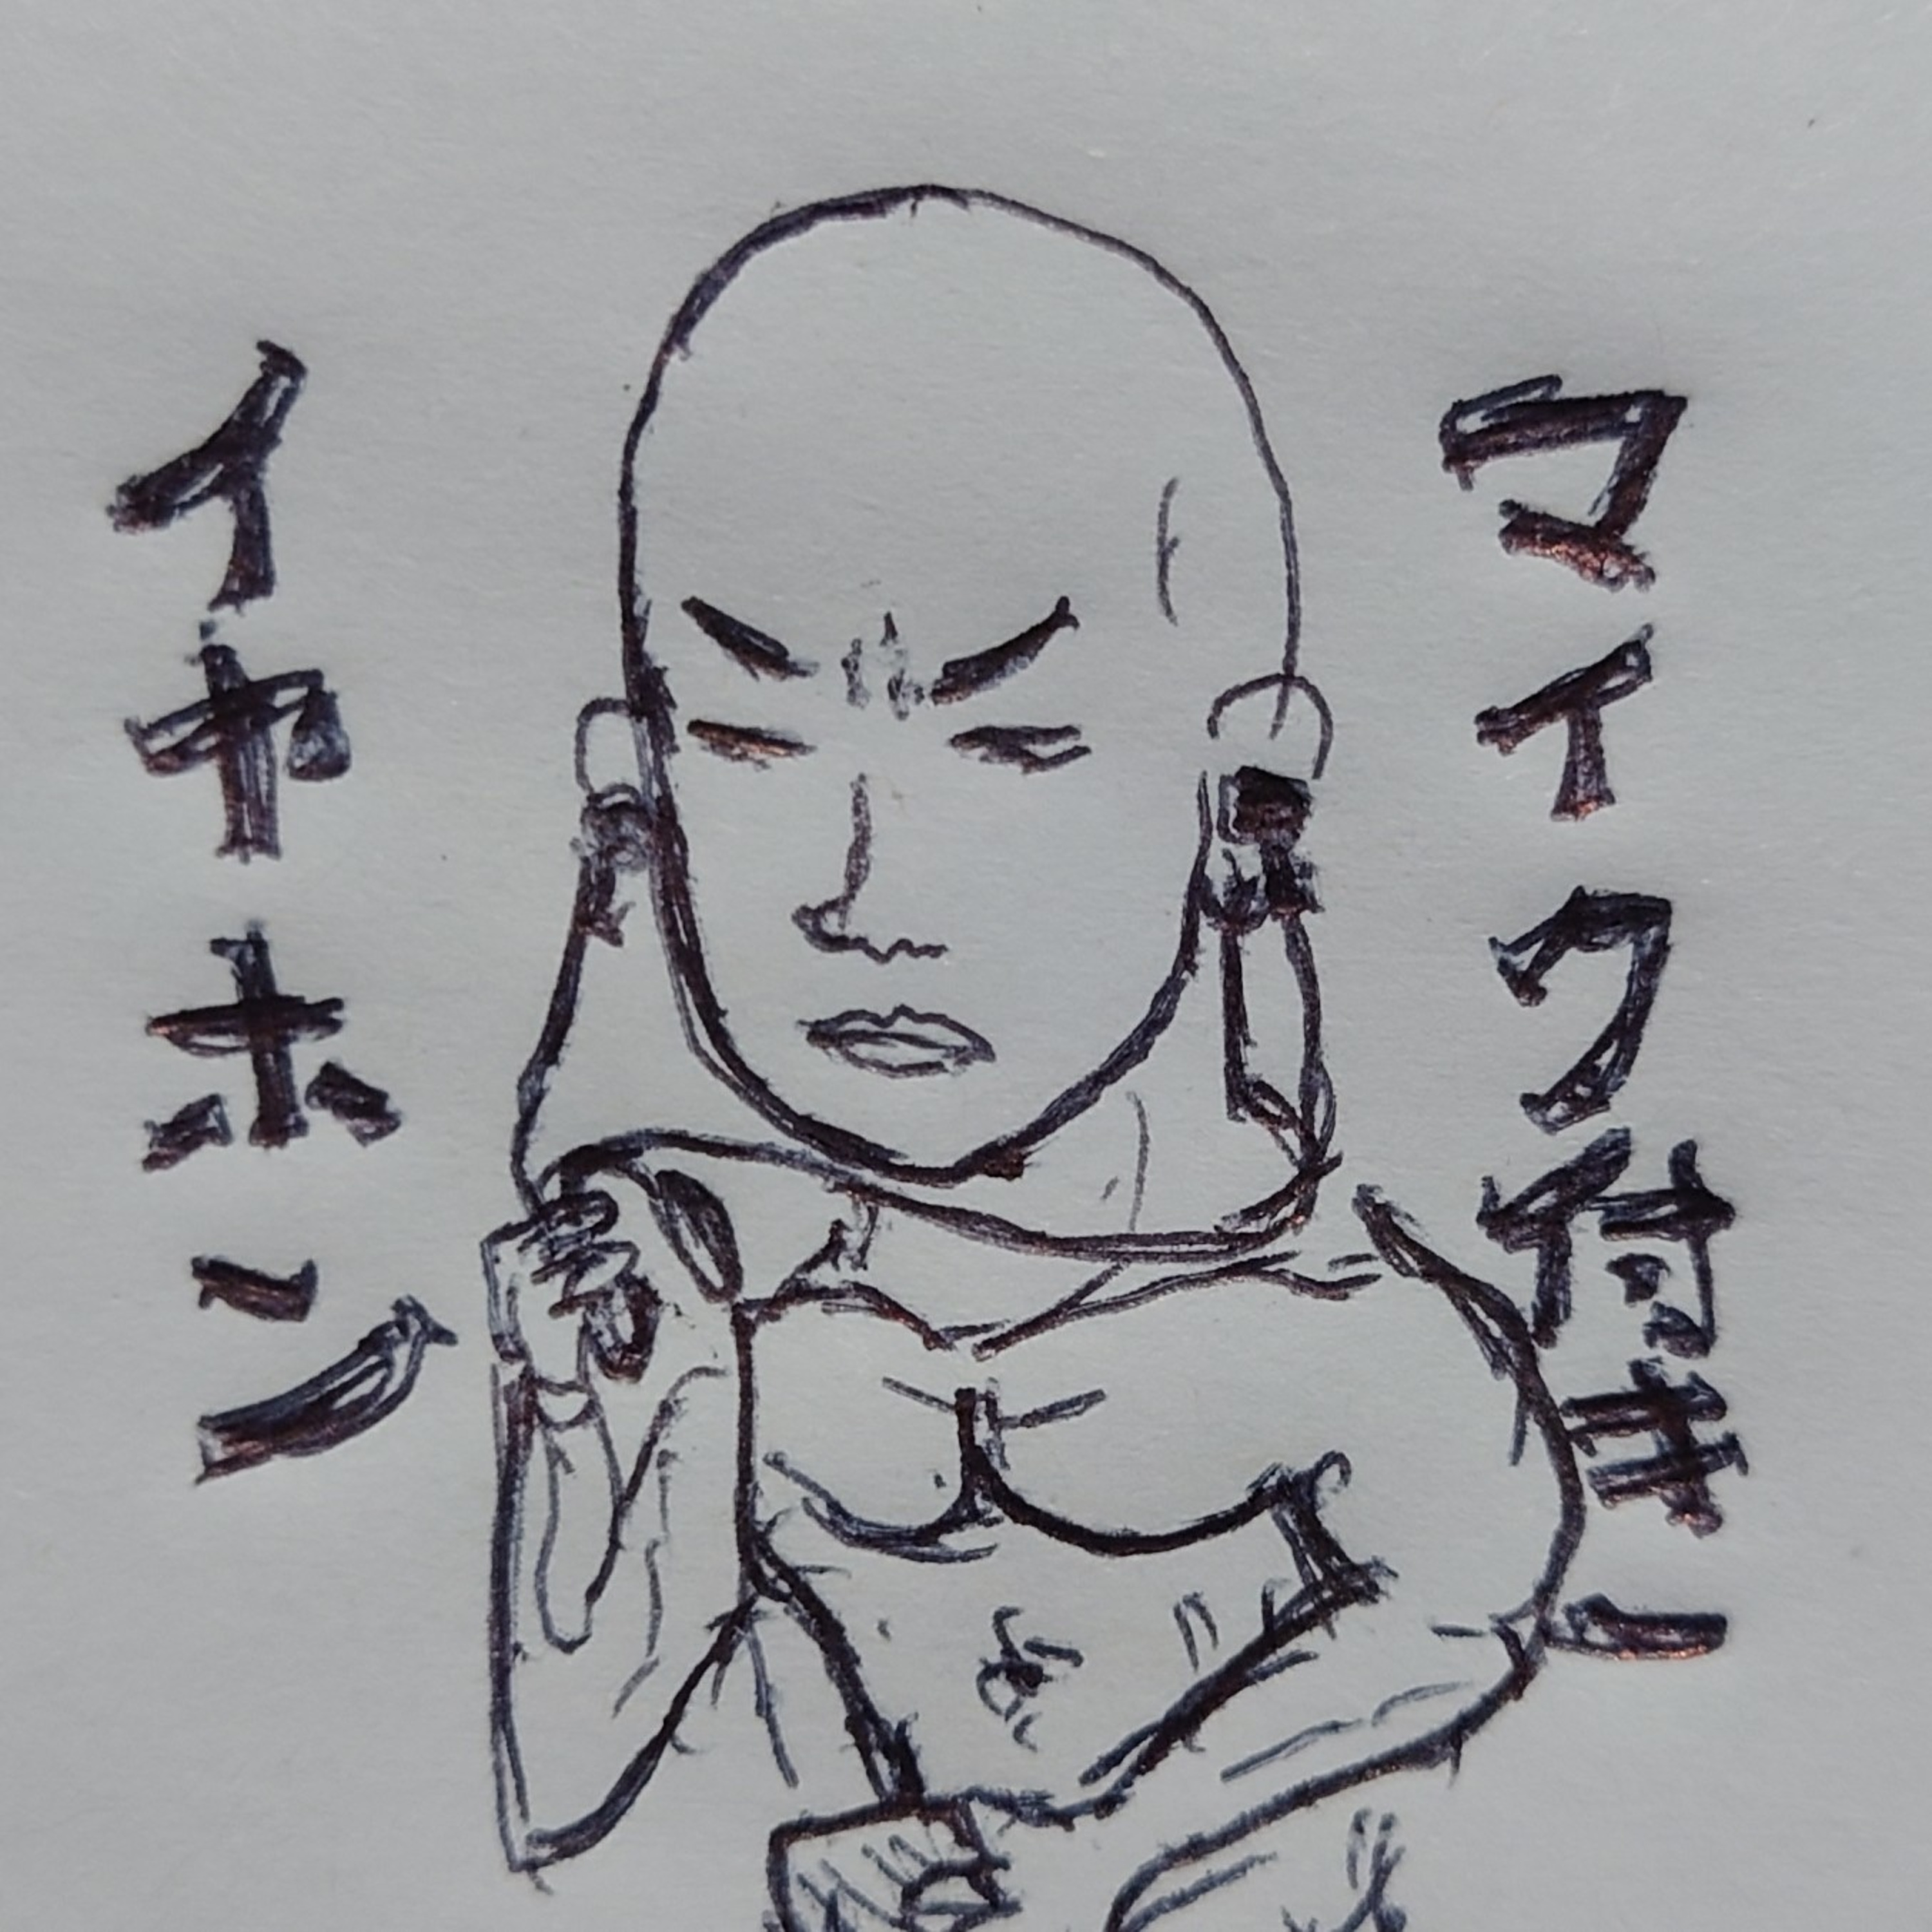 マイク付き
イヤホン